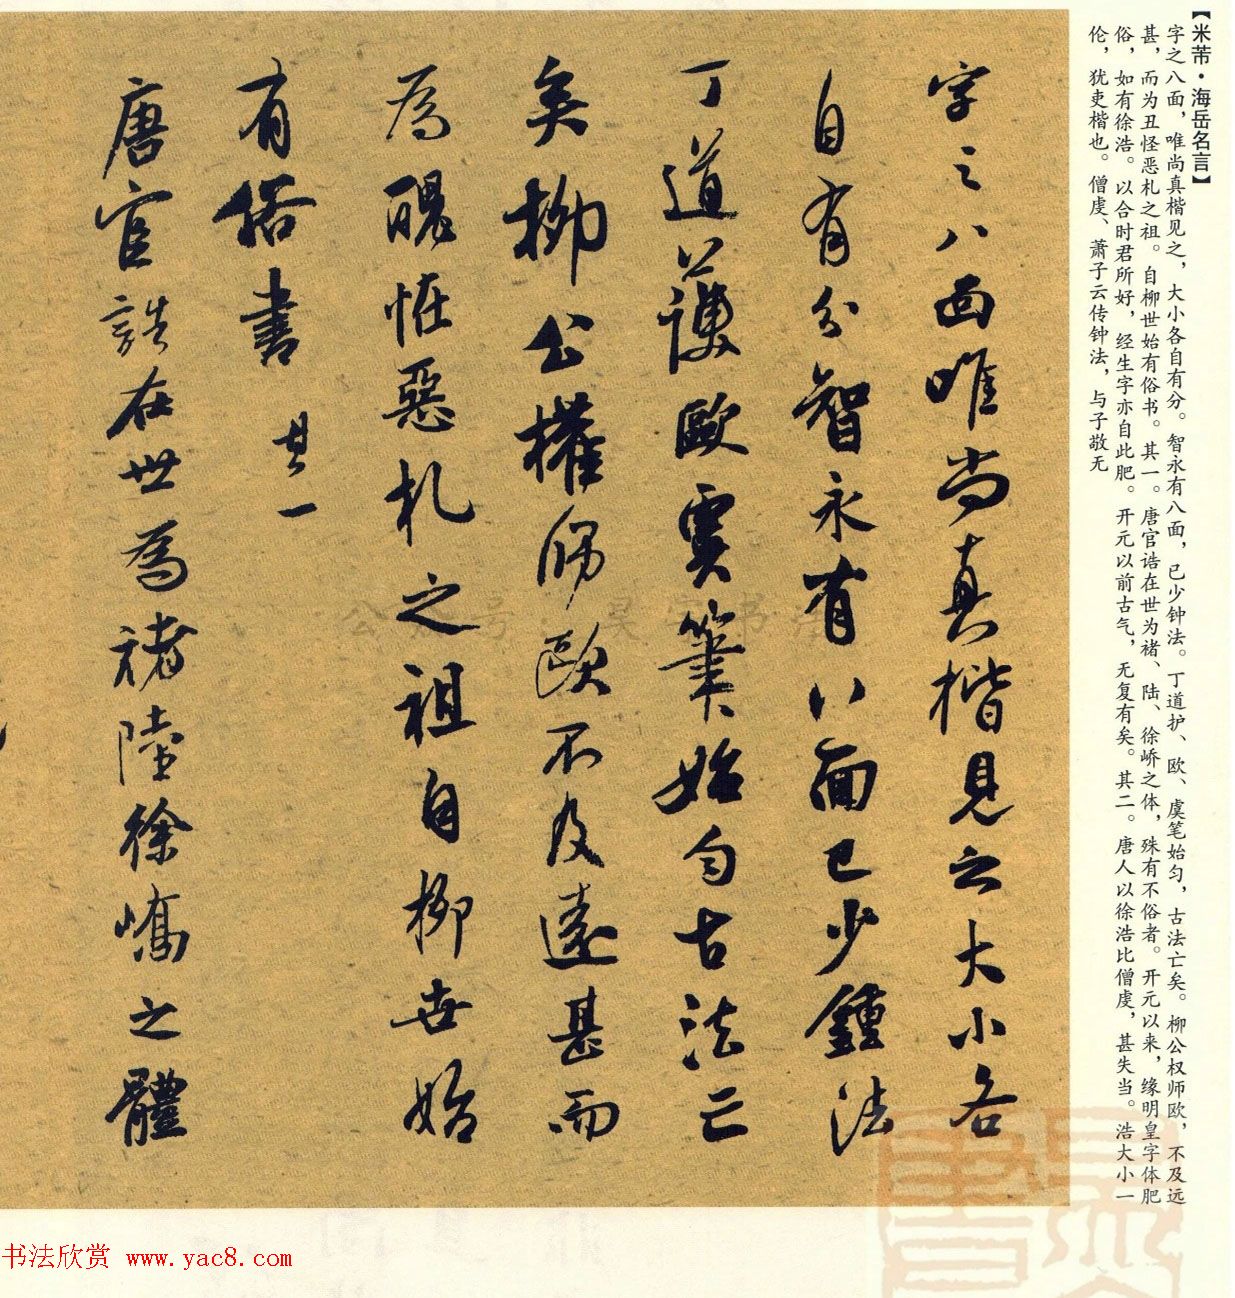 【米芾·海岳名言】
字之八面，唯尚真楷见之，大小各自有分。智永有八面，已少钟法。丁道护、欧、虞笔始匀，古法亡矣。柳公权师欧，不及远
甚，而为丑怪恶札之祖。自柳世始有俗书。其一。唐官诰在世为褚、陆、徐峤之体，殊有不俗者。开元以来，缘明皇字体肥
俗，如有徐浩。以合时君所好，经生字亦自此肥。开元以前古气，无复有矣。其二。唐人以徐浩比僧虔，甚失当。浩大小一
伦，犹吏楷也。僧虔、萧子云传钟法，与子敬无
字之八面唯尚真楷見之大小各
自有分智永有八面已少鍾法
丁道護歐虞筆始勻古法亡
矣柳公權師歐不及遠甚而
為醜怪惡札之祖自柳世始
有俗書其一
唐官誥在世為褚陸徐嶠之體
书法欣赏 www.yac8.com